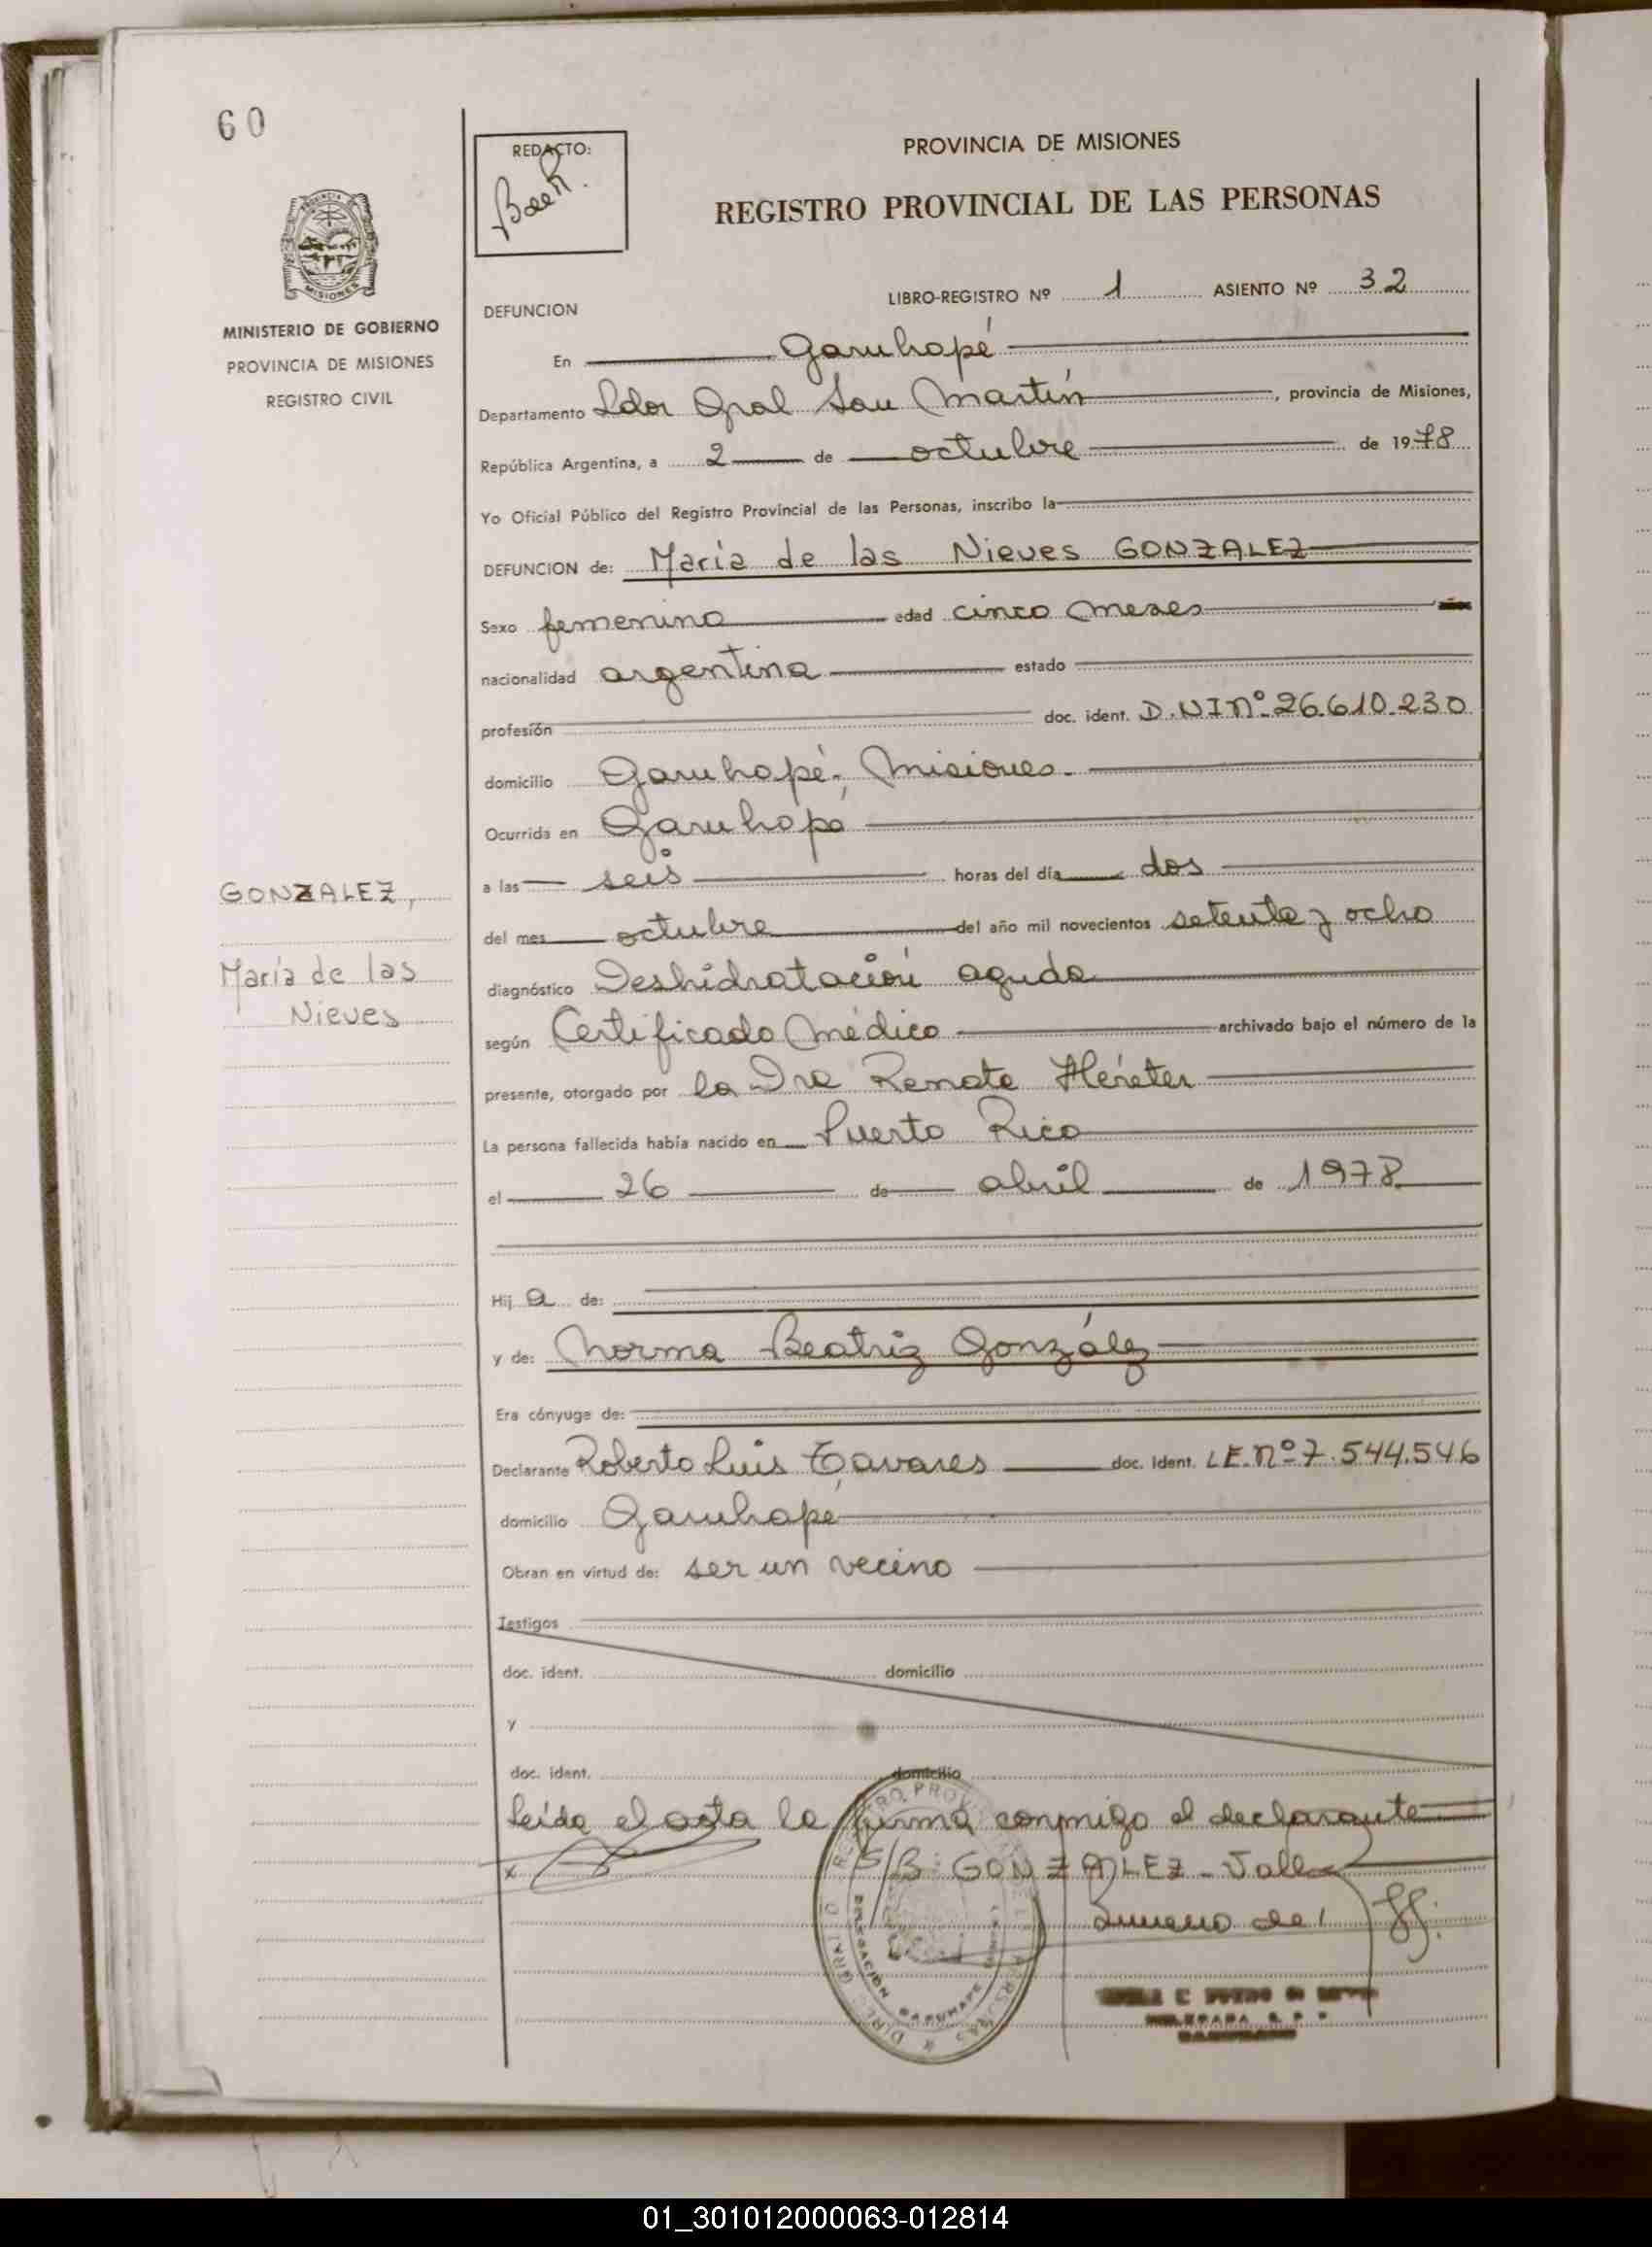 60
REDACTO:
PROVINCIA DE MISIONES
REGISTRO PROVINCIAL DE LAS PERSONAS
MISIONES
MINISTERIO DE GOBIERNO
PROVINCIA DE MISIONES
REGISTRO CIVIL
DEFUNCION
LIBRO-REGISTRO Nº 1 ASIENTO Nº 32
En Garuhapé
Departamento Ldor Gral San Martín, provincia de Misiones,
República Argentina, a 2 de octubre de 1978
Yo Oficial Público del Registro Provincial de las Personas, inscribo la
DEFUNCION de: María de las Nieves GONZALEZ
Sexo femenino edad cinco meses
nacionalidad argentina estado
profesión doc. ident. D.NI Nº 26.610.230
domicilio Garuhapé, Misiones.
Ocurrida en Garuhapé
a las seis horas del día dos
del mes octubre del año mil novecientos setenta y ocho
diagnóstico Deshidratación aguda
según Certificado Médico archivado bajo el número de la
presente, otorgado por la Dra Renate Héreter
La persona fallecida había nacido en Puerto Rico
el 26 de abril de 1978
Hij a de:
y de: Norma Beatriz González
Era cónyuge de:
Declarante Roberto Luis Tavares doc. Ident. LE.Nº 7.544.546
domicilio Garuhapé
Obran en virtud de: ser un vecino
Testigos
doc. ident. domicilio
y
doc. ident. domicilio
Leída el acta la firma conmigo el declarante
S/B: GONZALEZ - Vale
GONZALEZ,
María de las
Nieves
DELEGACION GARUHAPE
01_301012000063-012814